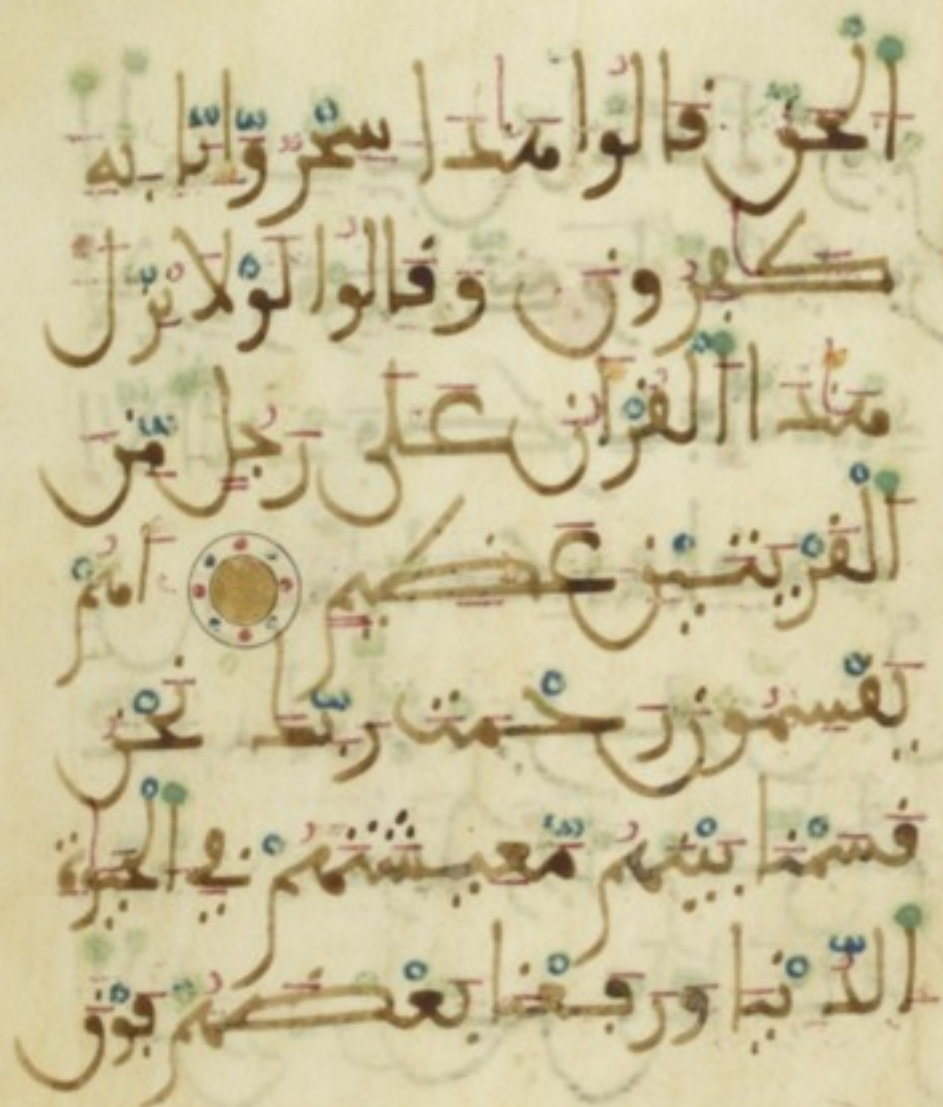 الحق قالوا هذا سحر وإنا به
كفرون وقالوا لولا نزل
هذا القرءان على رجل من
القريتين عظيم أهم
يقسمون رحمت ربك نحن
قسمنا بينهم معيشتهم في الحيوة
الدنيا ورفعنا بعضهم فوق